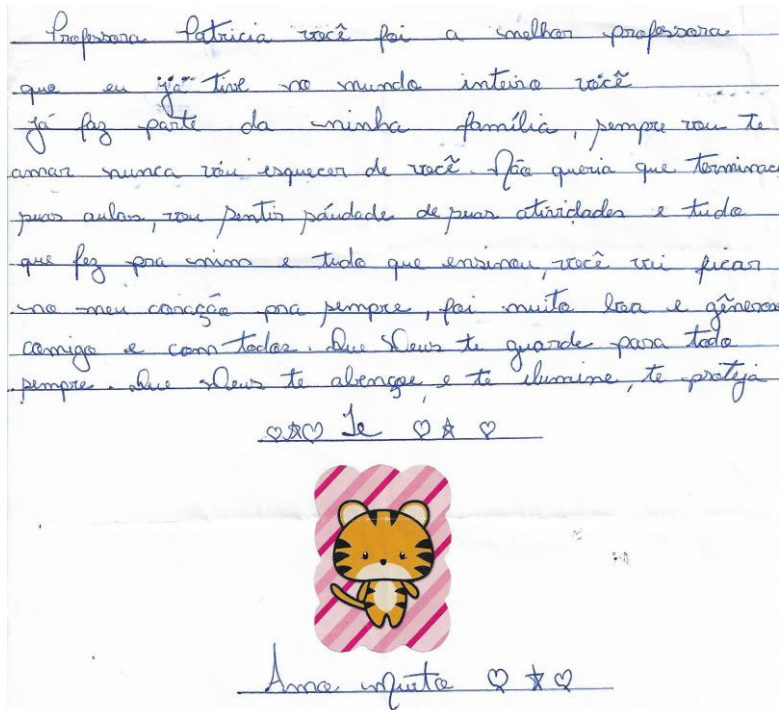 Professora Patricia você foi a melhor professora
que eu já tive no mundo inteiro você
já faz parte da minha família, sempre vou te
amar nunca vou esquecer de você. Não queria que terminac
suas aulas, vou sentir sáudade de suas atividades e tudo
que fez pra mim e tudo que ensinou, você vai ficar
no meu coração pra sempre, foi muito boa e gênerosa
comigo e com todos. Que Deus te guarde para todo
sempre. Que Deus te abençoe, e te ilumine, te proteja
♡☆♡ Te ♡☆♡
Amo muito ♡☆♡